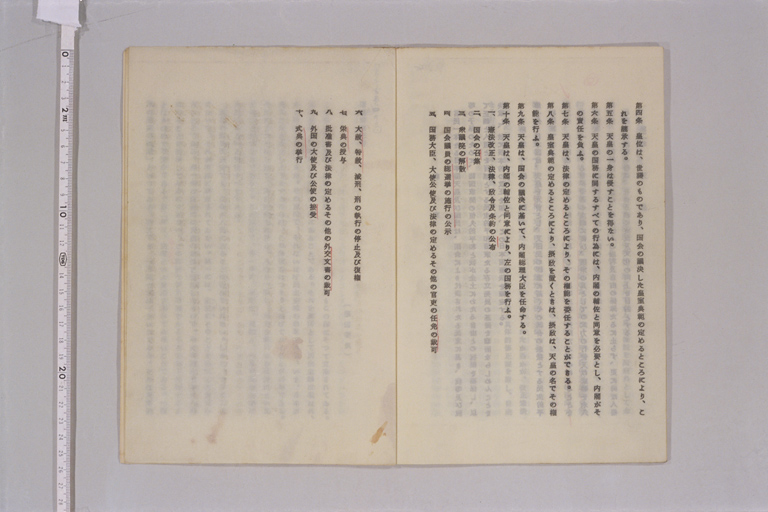 第四条　皇位は、世襲のものであり、国会の議決した皇室典範の定めるところにより、こ
れを継承する。
第五条　天皇の一身は侵すことを得ない。
第六条　天皇の国務に関するすべての行為には、内閣の輔佐と同意を必要とし、内閣がそ
の責任を負ふ。
第七条　天皇は、法律の定めるところにより、その権能を委任することができる。
第八条　皇室典範の定めるところにより、摂政を置くときは、摂政は、天皇の名でその権
能を行ふ。
第九条　天皇は、国会の議決に基いて、内閣総理大臣を任命する。
第十条　天皇は、内閣の輔佐と同意により、左の国務を行ふ。
一、憲法改正、法律、政令及条約の公布
二、国会の召集
三、衆議院の解散
四、国会議員の総選挙の施行の公示
五、国務大臣、大使公使及び法律の定めるその他の官吏の任免の認可
六、大赦、特赦、減刑、刑の執行の停止及び復権
七、栄典の授与
八、批准書及び法律の定めるその他の外交文書の認可
九、外国の大使及び公使の接受
十、式典の挙行
0
2m
10
20